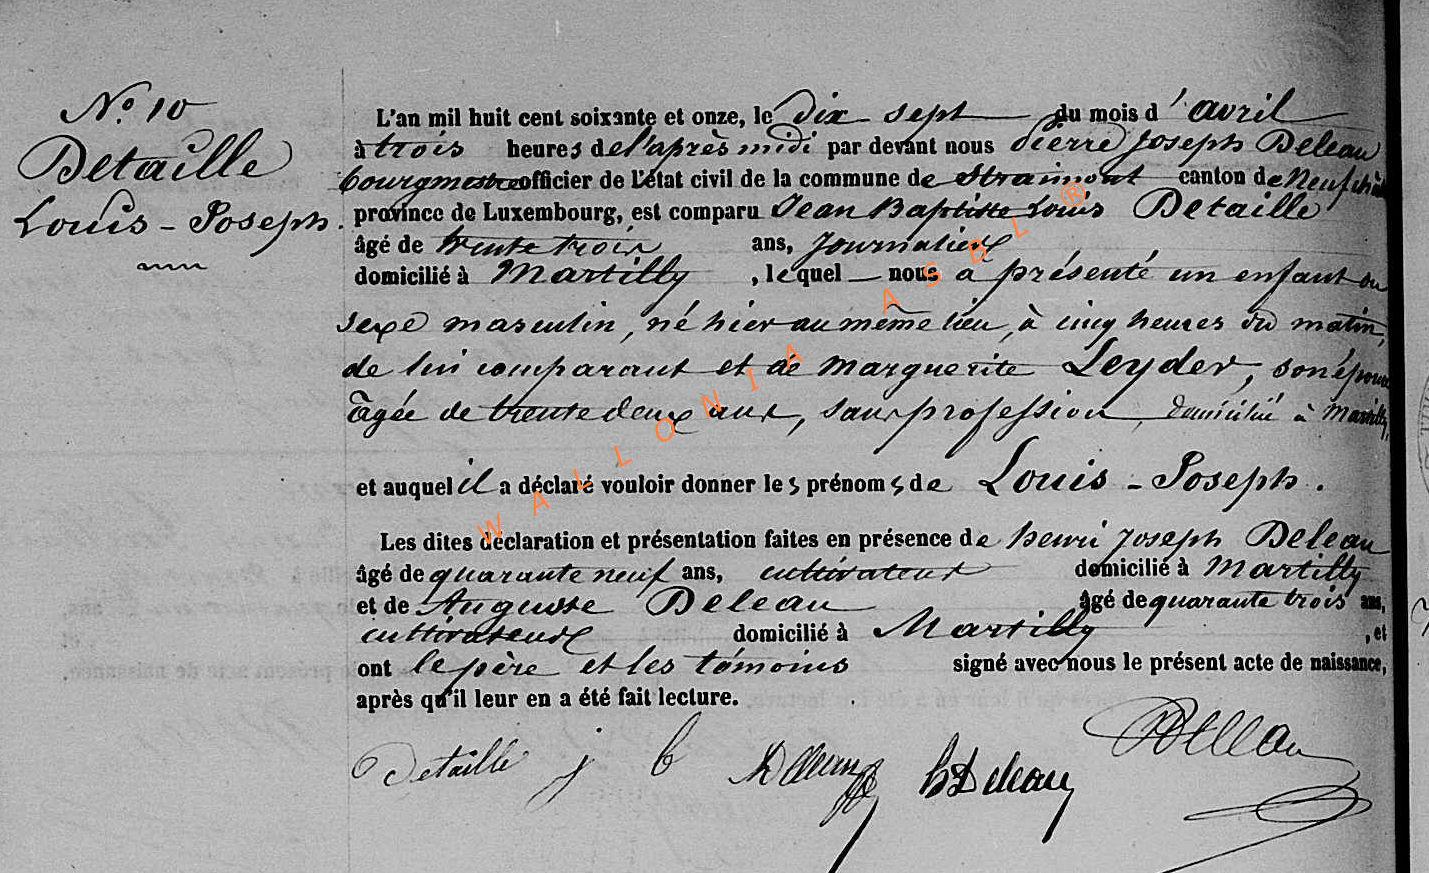 N.º 10
Detaille
Louis-Joseph.
L'an mil huit cent soixante et onze, le dix sept du mois d'avril
à trois heures de l'après midi par devant nous Pierre Joseph Deleau
bourgmestre officier de l'état civil de la commune de Straimont canton de Neufchâ
province de Luxembourg, est comparu Jean Baptiste Louis Detaille
âgé de trente trois ans, Journalier
domicilié à Martilly, lequel nous a présenté un enfant du
sexe masculin, né hier au même lieu, à cinq heures du matin,
de lui comparant et de Marguerite Leyder, son épouse
âgée de trente deux ans, sans profession, domicilié à Martilly,
et auquel il a déclaré vouloir donner les prénoms de Louis-Joseph.
Les dites déclaration et présentation faites en présence de henri Joseph Deleau
âgé de quarante neuf ans, cultivateur domicilié à Martilly
et de Auguste Deleau âgé de quarante trois ans,
cultivateur domicilié à Martilly, et
ont le père et les témoins signé avec nous le présent acte de naissance,
après qu'il leur en a été fait lecture.
Detaille j b
h Deleau
WALLONIA ASBL ®